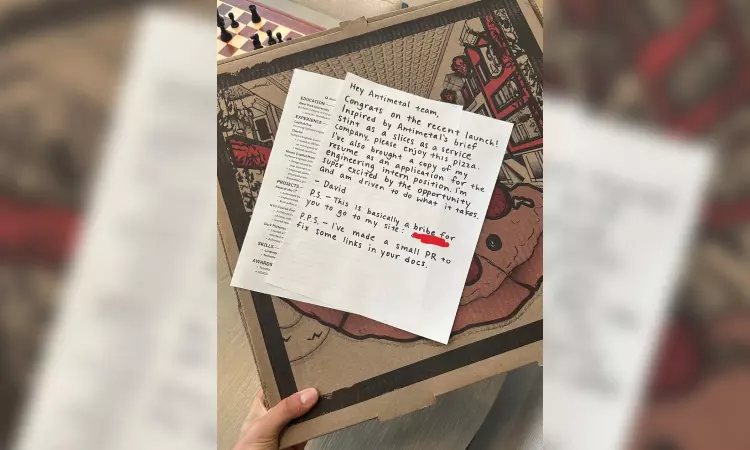 Hey Antimetal team,
Congrats on the recent launch!
Inspired by Antimetal's brief
stint as a slices as a service
company, please enjoy this pizza.
I've also brought a copy of my
resume as an application for the
engineering intern position. I'm
super excited by the opportunity
and am driven to do what it takes.
- David
P.S. - This is basically a bribe for
you to go to my site:
P.P.S. - I've made a small PR to
fix some links in your docs.
EDUCATION
EXPERIENCE
PROJECTS
SKILLS
AWARDS